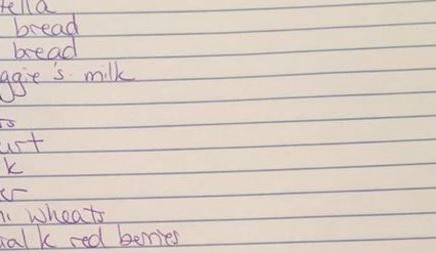 tella
bread
bread
aggie's milk
rs
urt
k
er
ni wheats
ial k red berries